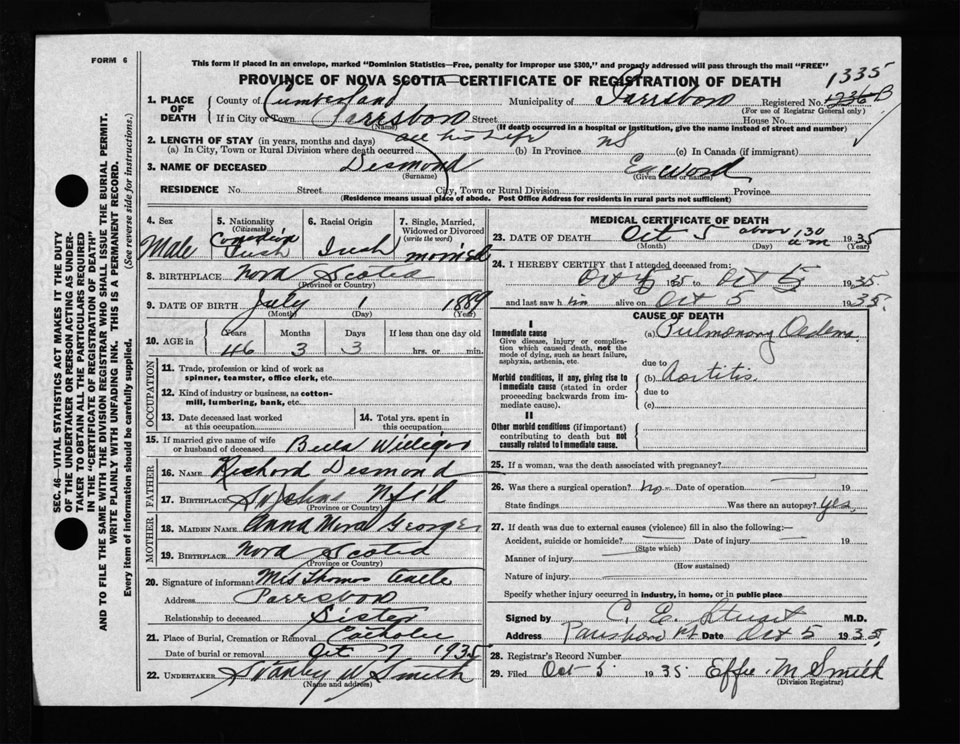 FORM 6
This form if placed in an envelope, marked "Dominion Statistics—Free, penalty for improper use $300," and properly addressed will pass through the mail "FREE"
PROVINCE OF NOVA SCOTIA—CERTIFICATE OF REGISTRATION OF DEATH
1335
1. PLACE OF DEATH
County of Cumberland Municipality of Parrsboro Registered No. 1236 B
(For use of Registrar General only)
If in City or Town Parrsboro Street House No.
(Name) (If death occurred in a hospital or institution, give the name instead of street and number)
2. LENGTH OF STAY (in years, months and days) all his life NS
(a) In City, Town or Rural Division where death occurred (b) In Province (c) In Canada (if immigrant)
3. NAME OF DECEASED Desmond Edword
(Surname) (Given name or names)
RESIDENCE No. Street City, Town or Rural Division Province
(Residence means usual place of abode. Post Office Address for residents in rural parts not sufficient)
4. Sex Male
5. Nationality (Citizenship) Canadian Irish
6. Racial Origin Irish
7. Single, Married, Widowed or Divorced (write the word) married
8. BIRTHPLACE Nova Scotia
(Province or Country)
9. DATE OF BIRTH July 1 1889
(Month) (Day) (Year)
10. AGE in Years Months Days If less than one day old
46 3 3 hrs. or min.
OCCUPATION
11. Trade, profession or kind of work as spinner, teamster, office clerk, etc.
12. Kind of industry or business, as cotton-mill, lumbering, bank, etc.
13. Date deceased last worked at this occupation
14. Total yrs. spent in this occupation
15. If married give name of wife or husband of deceased Bella
FATHER
16. NAME Richard Desmond
17. BIRTHPLACE St Johns Nfld
(Province or Country)
MOTHER
18. MAIDEN NAME Anna George
19. BIRTHPLACE Nova Scotia
(Province or Country)
20. Signature of informant Mrs Thomas
Address Parrsboro
Relationship to deceased Sister
21. Place of Burial, Cremation or Removal Catholic
Date of burial or removal Oct 7 1935
22. UNDERTAKER Stanley W Smith
(Name and address)
MEDICAL CERTIFICATE OF DEATH
23. DATE OF DEATH Oct 5 about 1.30 a m 1935
(Month) (Day) (Year)
24. I HEREBY CERTIFY that I attended deceased from:
Oct 5 1935 to Oct 5 1935
and last saw h im alive on Oct 5 1935.
CAUSE OF DEATH
I
Immediate cause
Give disease, injury or complication which caused death, not the mode of dying, such as heart failure, asphyxia, asthenia, etc.
(a) Pulmonary Oedema
due to
Morbid conditions, if any, giving rise to immediate cause (stated in order proceeding backwards from immediate cause).
(b) Aortitis.
due to
(c)
II
Other morbid conditions (if important) contributing to death but not causally related to immediate cause.
25. If a woman, was the death associated with pregnancy?
26. Was there a surgical operation? No Date of operation 19
State findings Was there an autopsy? yes
27. If death was due to external causes (violence) fill in also the following:—
Accident, suicide or homicide? Date of injury 19
(State which)
Manner of injury
(How sustained)
Nature of injury
Specify whether injury occurred in industry, in home, or in public place
Signed by C. E. Stuart M.D.
Address Parrsboro Date Oct 5 1935
28. Registrar's Record Number
29. Filed Oct 5 1935 Effie M Smith
(Division Registrar)
SEC. 46—VITAL STATISTICS ACT MAKES IT THE DUTY
OF THE UNDERTAKER OR PERSON ACTING AS UNDER-
TAKER TO OBTAIN ALL THE PARTICULARS REQUIRED
IN THE "CERTIFICATE OF REGISTRATION OF DEATH"
AND TO FILE THE SAME WITH THE DIVISION REGISTRAR WHO SHALL ISSUE THE BURIAL PERMIT.
WRITE PLAINLY WITH UNFADING INK. THIS IS A PERMANENT RECORD.
Every item of information should be carefully supplied. (See reverse side for instructions.)